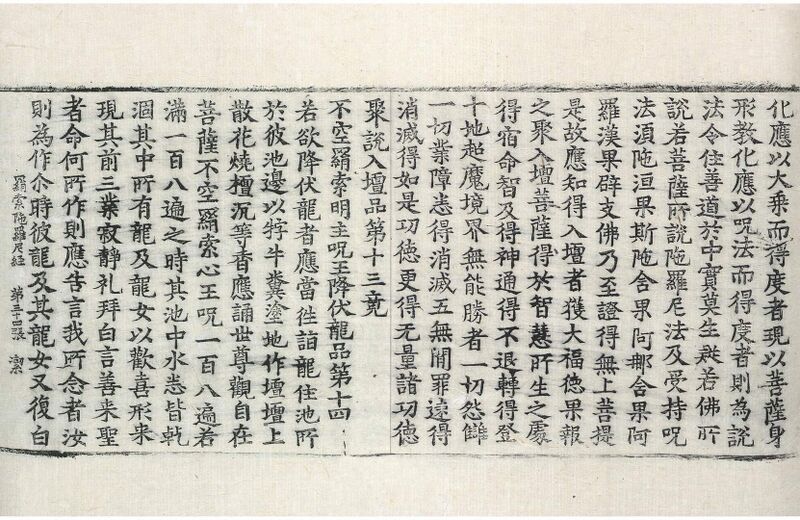 化應以大乘而得度者現以菩薩身
形教化應以呪法而得度者則為說
法令住善道於中實莫生疑若佛所
說若菩薩所說陁羅尼法及受持呪
法湏陁洹果斯陁含果阿那含果阿
羅漢果辟支佛乃至證得無上菩提
是故應知得入壇者獲大福德果報
之聚入壇菩薩得於智慧所生之處
得宿命智及得神通得不退轉得登
十地超魔境界無能勝者一切怨讎
一切業障悉得消滅五無間罪遠得
消滅得如是功德更得无量諸功德
聚說入壇品第十三竟
不空羂索明主呪王降伏龍品第十四
若欲降伏龍者應當往詣龍住池所
於彼池邊以牸牛糞塗地作壇壇上
散花燒檀沉等香應誦世尊觀自在
菩薩不空羂索心王呪一百八遍若
滿一百八遍之時其池中水悉皆乹
涸其中所有龍及龍女以歡喜形来
現其前三業寂静礼拜白言善来聖
者命何所作則應告言我所念者汝
則為作尒時彼龍及其龍女又復白
羂索陁羅尼經 第三十四張 潔